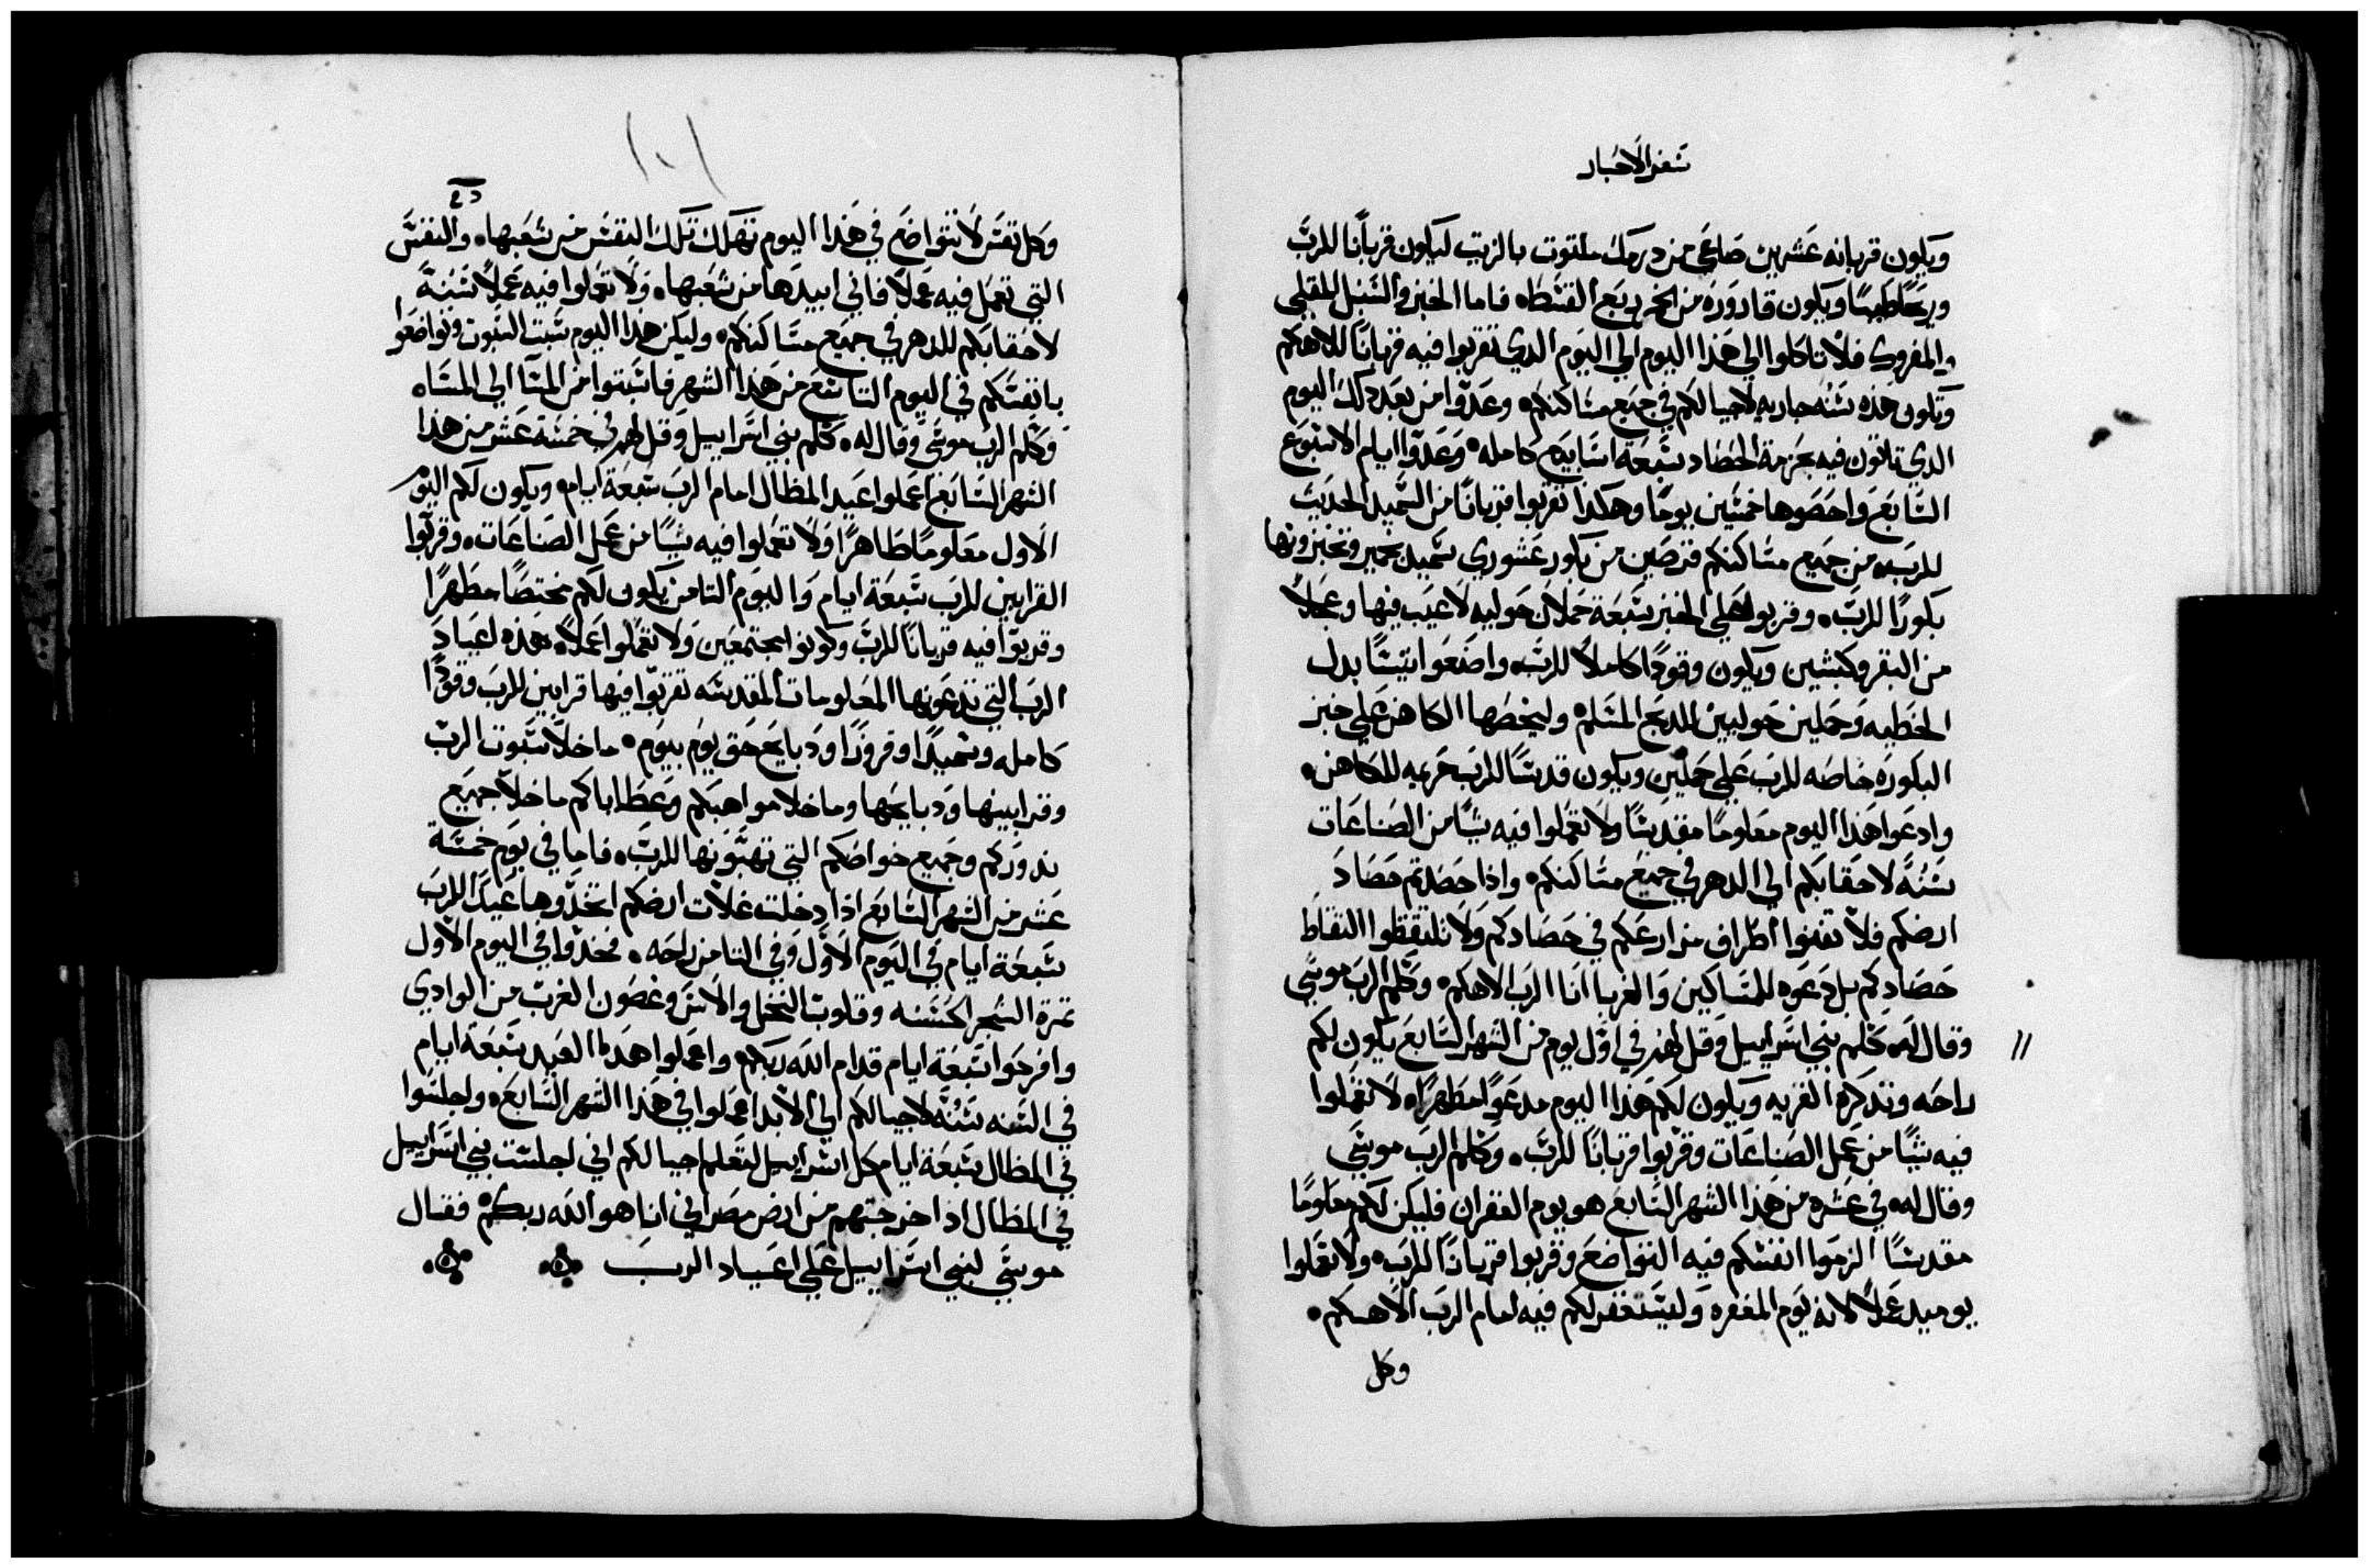 سفر الاحبار
ويكون قربانه عشرين صاعي من درمك ملتوت بالزيت ليكون قربانا للرب
وريحا طيبا ويكون قارورة من الخمر بربع القسط٥ فاما الخبز والسنبل المقلي
والمفروك فلا تاكلوا الي هذا اليوم الي اليوم الدي تقربوا فيه قربانا للالهكم
وتكون هذه سنه جاريه لاجيالكم في جميع مساكنكم٥ وعدوا من بعد دلك اليوم
الدي تاتون فيه بحزمة الحصاد سبعة اسابيع كامله٥ وعدوا ايام الاسبوع
السابع واحصوها خمسين يوما وهكدا تقربوا قربانا من السميد الحديث
للرب٥ من جميع مساكنكم قرصين من بكور عشوري سميد خمير وتخبزونها
بكورا للرب٥ وقربوا علي الخبز سبعة حملان حوليه لا عيب فيها وعجلا
من البقر وكبشين ويكون وقودا كاملا للرب٥ واضعوا تيسا بدل
الخطيه وحملين حوليين لدبح المسلم٥ وليخصها الكاهن علي خبز
البكوره خاصه للرب علي حملين ويكون قدسا للرب خريه للكاهن٥
وادعوا هدا اليوم معلوما مقدسا ولا تعملوا فيه شيا من الصناعات
سنة لاحقابكم الي الدهر في جميع مساكنكم٥ وادا حصدتم حصاد
ارضكم فلا تفنوا اطراف مزارعكم في حصادكم ولا تلتقطوا التقاط
حصادكم بل دعوه للمساكين والغربا انا الرب الاهكم٥ وكلم الرب موسي
وقال له٥ كلم بني اسراييل وقل لهم في اول يوم من الشهر السابع يكون لكم
راحه وتدكرة القريه ويكون لكم هدا اليوم مدعوا مطهرا٥ لا تعملوا
فيه شيا من عمل الصناعات وقربوا قربانا للرب٥ وكلم الرب موسي
وقال له٥ في عشره من هدا الشهر السابع هو يوم الغفران فليكن لكم معلوما
مقدسا الزموا انفسكم فيه التواضع وقربوا قربانا للرب٥ ولا تعملوا
يوميد عملا لانه يوم المغفره وليستغفر لكم فيه امام الرب الاهكم٥
وكل
١٠١
وكل نفس لا تتواضع في هدا اليوم تهلك تلك النفس من شعبها٥ والنفس
التي تعمل فيه عملا فاني ابيدها من شعبها٥ ولا تعملوا فيه عملا سنة
لاحقابكم للدهر في جميع مساكنكم٥ وليكن هدا اليوم سبت السبوت وتواضعوا
بانفسكم في اليوم التاسع من هدا الشهر فاسبتوا من المسا الي المسا٥
وكلم الرب موسي وقال له٥ كلم بني اسراييل وقل لهم في خمسة عشر من هدا
الشهر السابع اعملوا عيد المظال امام الرب سبعة ايام٥ ويكون لكم اليوم
الاول معلوما طاهرا ولا تعملوا فيه شيا من عمل الصناعات٥ وقربوا
القرابين للرب سبعة ايام واليوم التامن يكون لكم مختصا مطهرا
وقربوا فيه قربانا للرب وكونوا مجتمعين ولا تعملوا عملا٥ هده اعياد
الرب التي تدعونها المعلومات المقدسه تقربوا فيها قرابين للرب وقودا
كامله وسميدا وقروزا ودبايح حق يوم بيوم٥ ما خلا سبوت الرب
وقرابينها ودبايحها وما خلا مواهبكم وعطاياكم ما خلا جميع
ندوركم وجميع خواصكم التي تهبونها للرب٥ فاما في يوم خمسة
عشر من الشهر السابع ادا دخلت غلات ارضكم اتخدوها عيدا للرب
سبعة ايام في اليوم الاول وفي التامن راحه٥ فخدوا في اليوم الاول
تمرة الشجر الحسنه وقلوب النخل والاس وغصون الغرب من الوادي
وافرحوا سبعة ايام قدام الله ربكم٥ واعملوا هدا العيد سبعة ايام
في السنه سنة لاجيالكم الي الابد اعملوا في هدا الشهر السابع٥ واجلسوا
في المظال سبعة ايام كل اسراييل لتعلم اجيالكم اني اجلست بني اسراييل
في المظال اد اخرجتهم من ارض مصر اني انا هو الله ربكم٥ فقال
موسي لبني اسراييل علي اعياد الرب